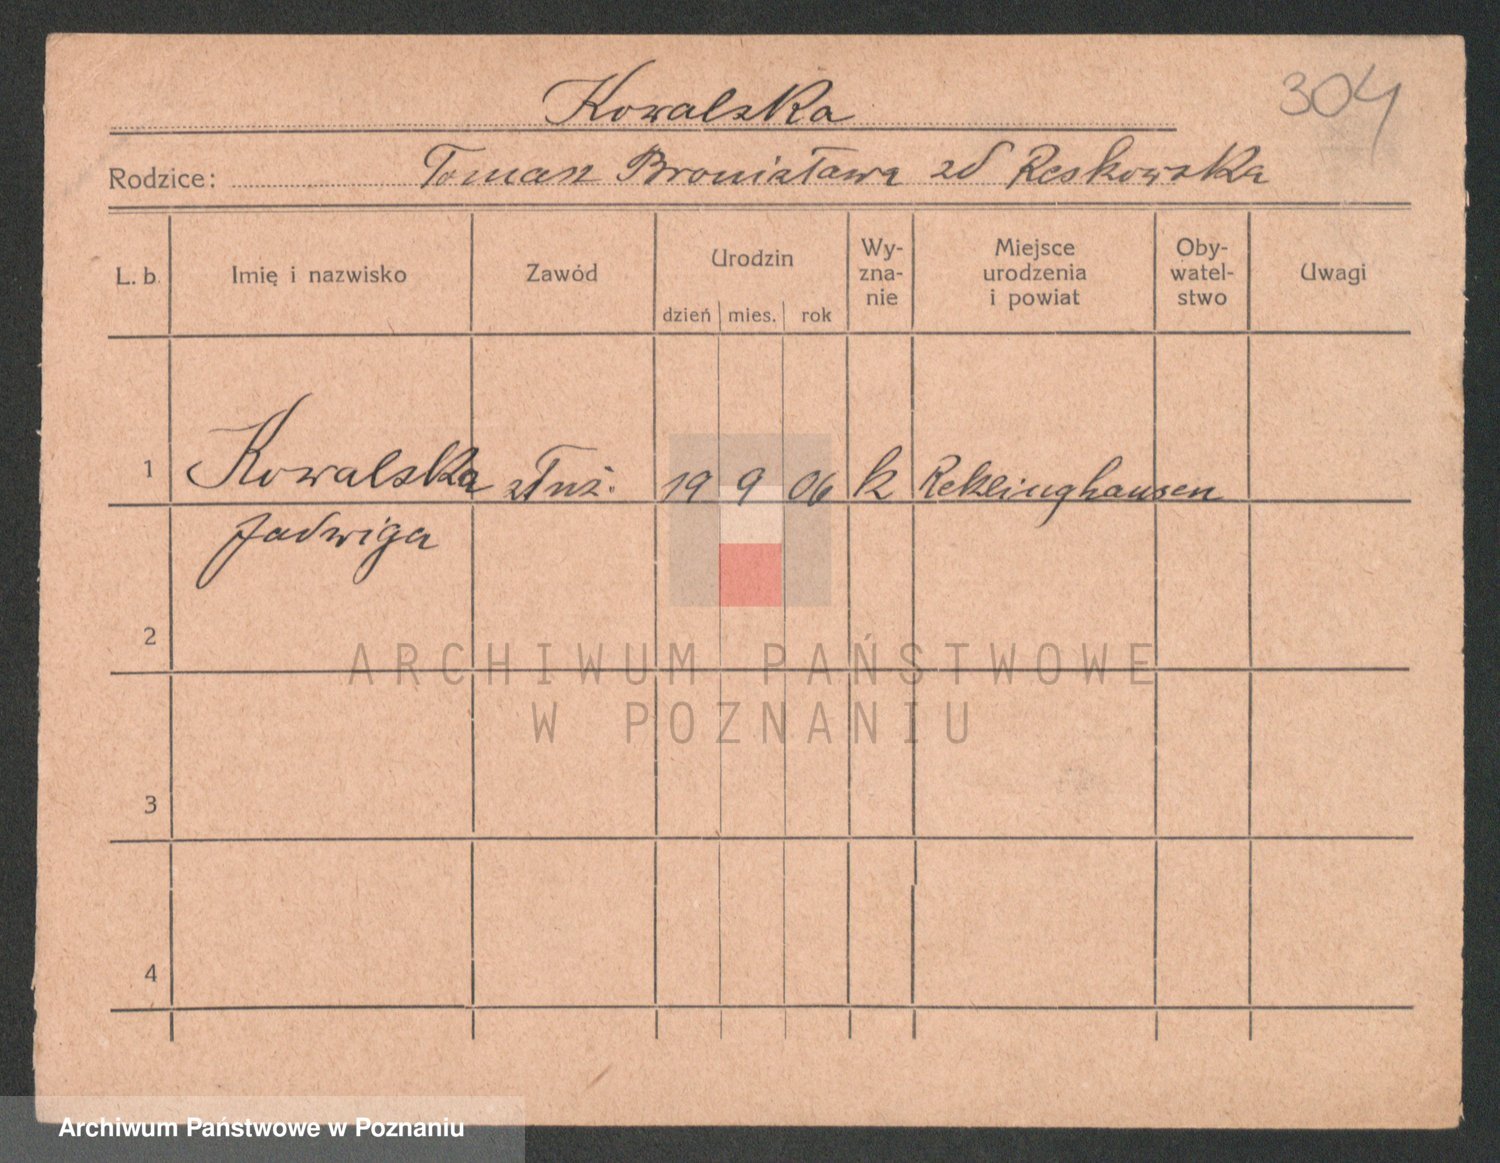 304
Kowalska
Rodzice: Tomasz Bronisława zd Reskowska
L. b. Imię i nazwisko Zawód Urodzin dzień mies. rok Wy- zna- nie Miejsce urodzenia i powiat Oby- watel- stwo Uwagi
1 Kowalska służ. 19 9 06 k Reklinghausen
Jadwiga
2
ARCHIWUM PAŃSTWOWE
W POZNANIU
3
4
Archiwum Państwowe w Poznaniu